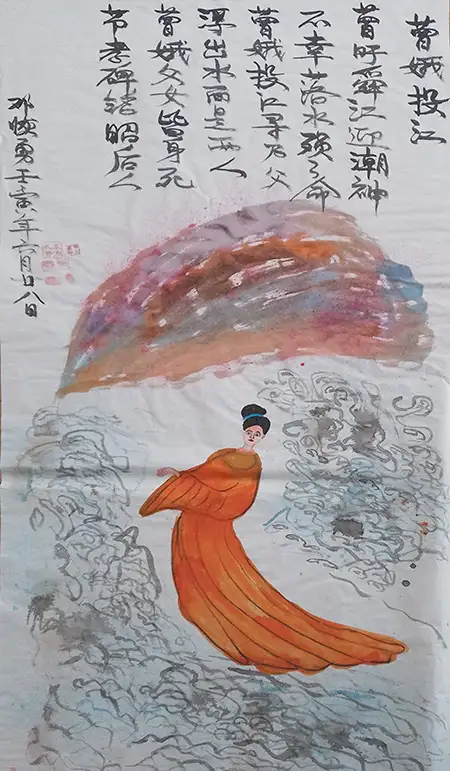 曹娥投江
曹盱舜江迎潮神
不幸落水殒了命
曹娥投江寻乃父
浮出水面是两人
曹娥父女皆身死
节孝碑铭昭后人
邓 勇壬寅年六月廿八日